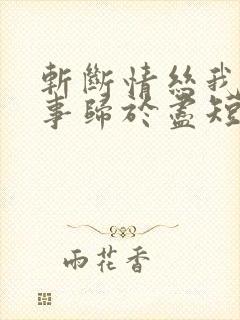 斬斷情絲我
事歸於盡短
雨花香